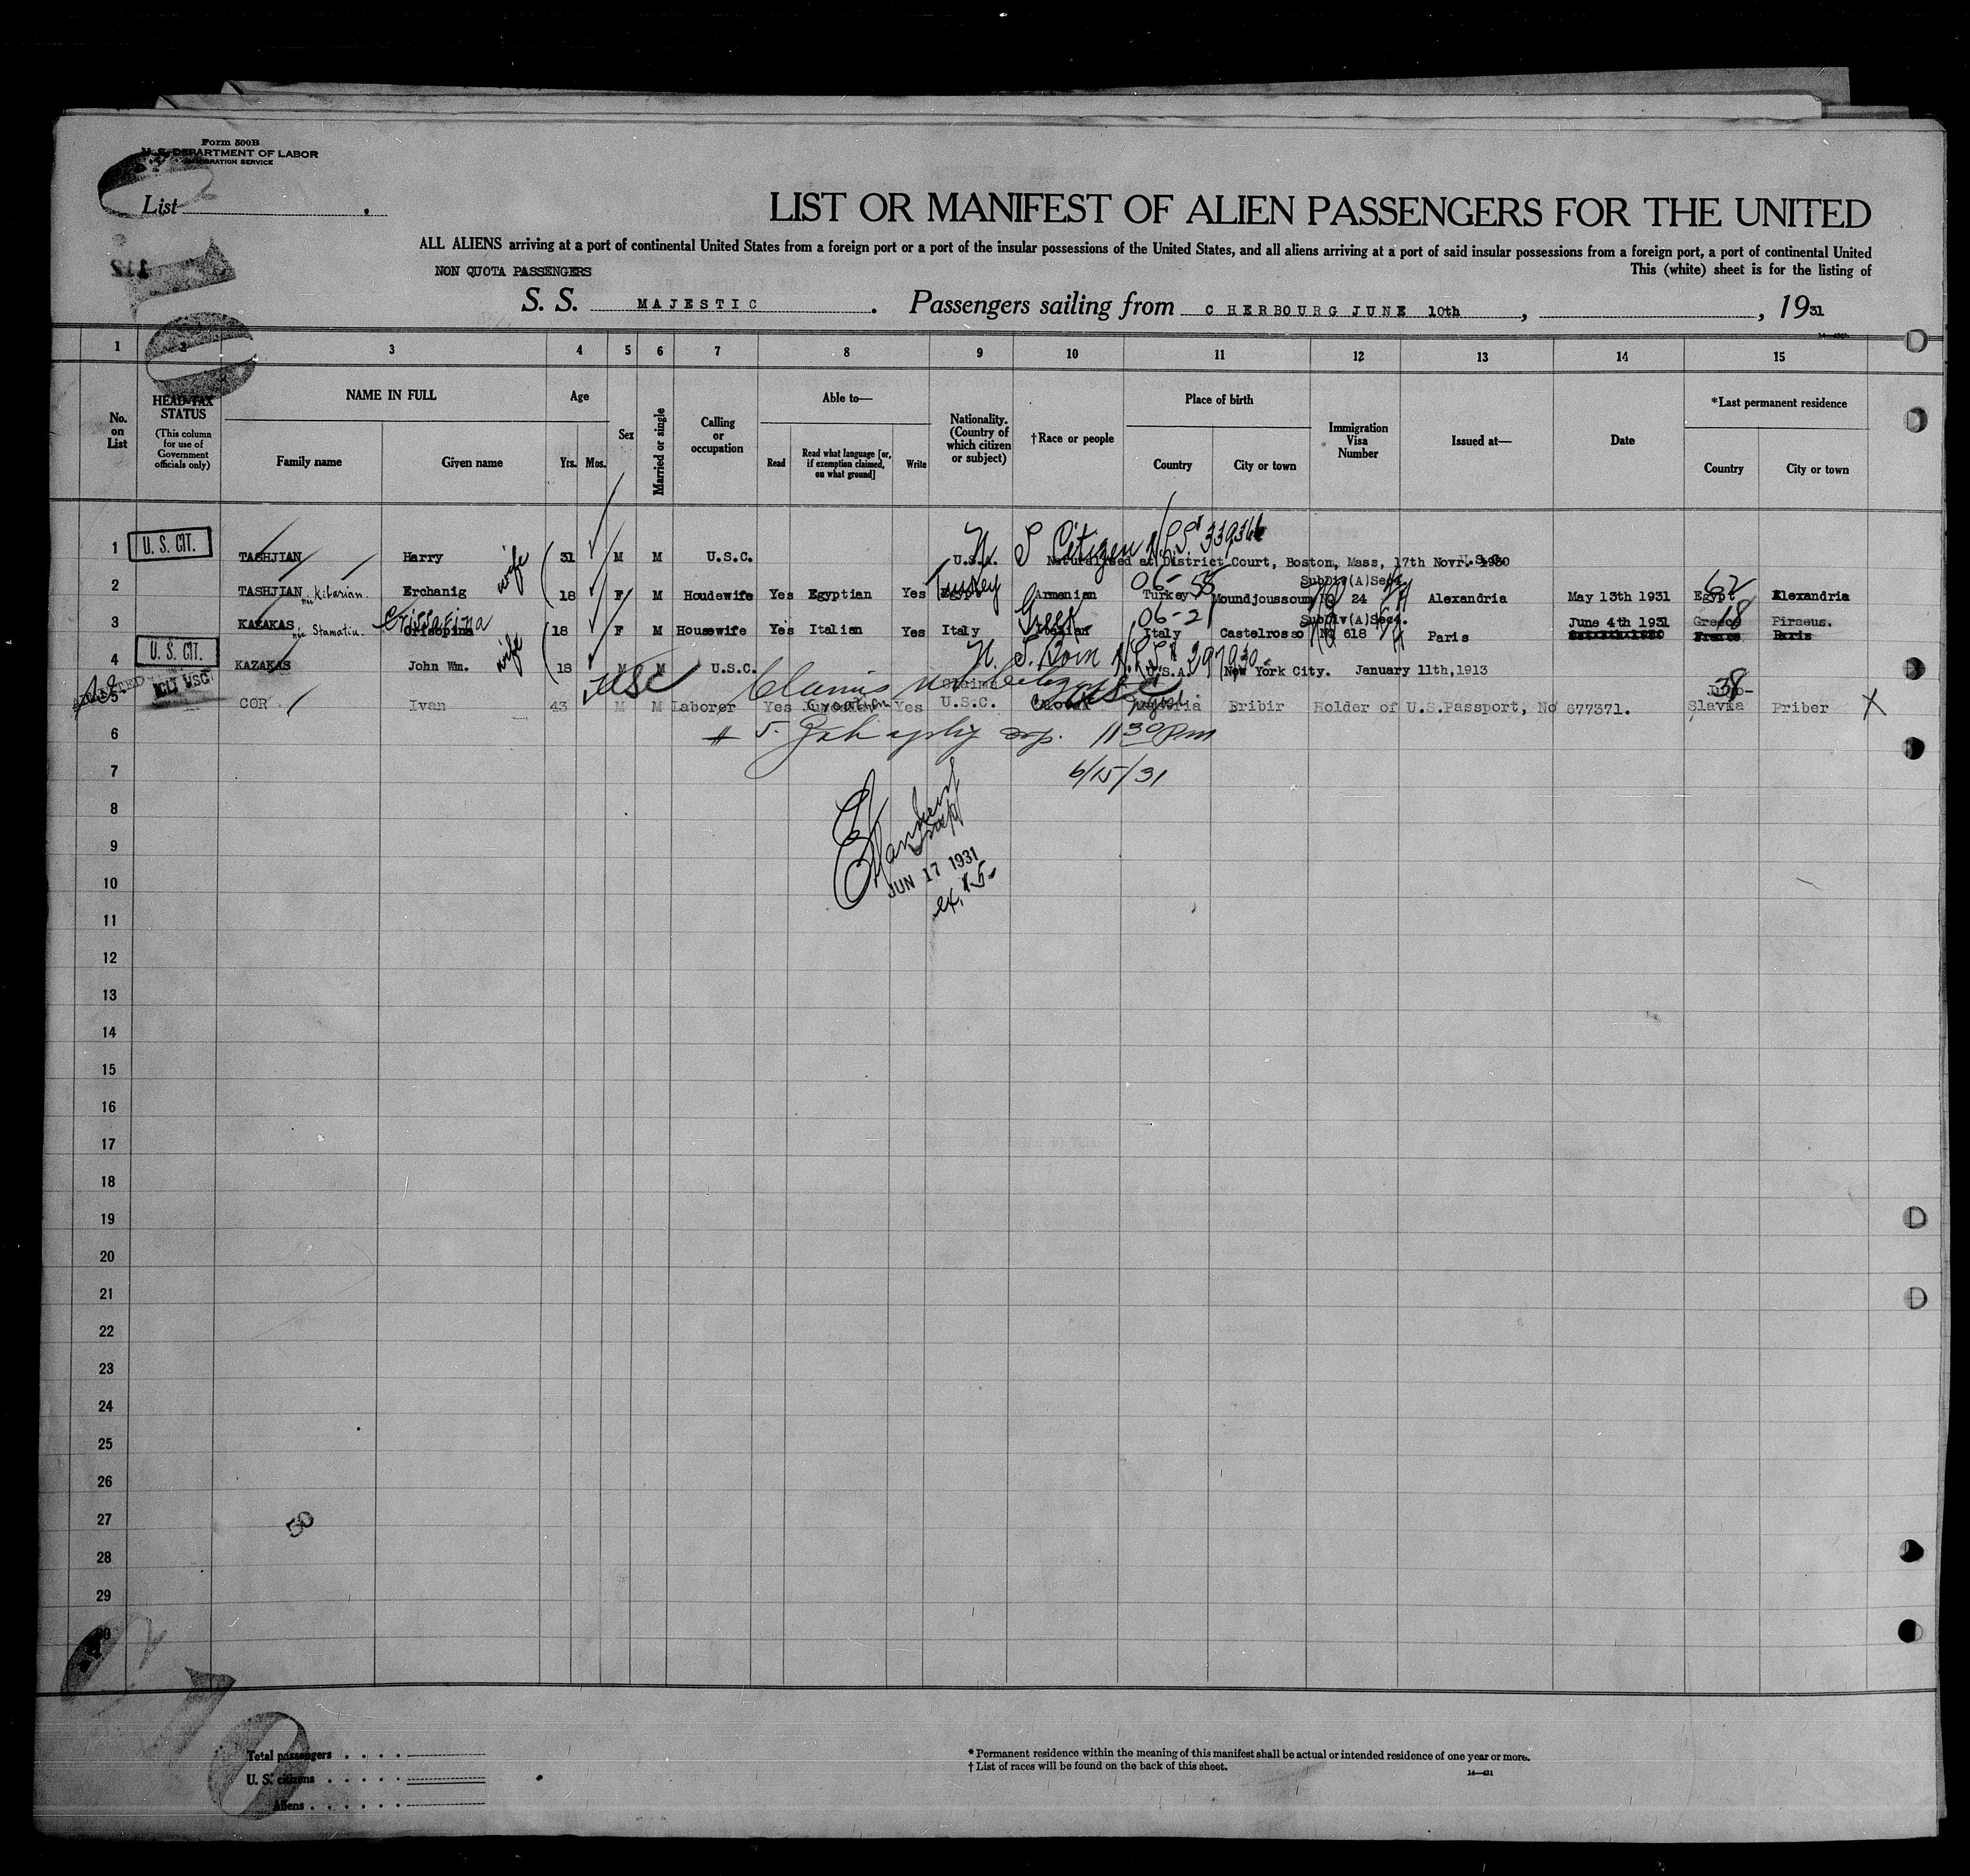 Form 500B
U. S. DEPARTMENT OF LABOR
IMMIGRATION SERVICE
List
LIST OR MANIFEST OF ALIEN PASSENGERS FOR THE UNITED
ALL ALIENS arriving at a port of continental United States from a foreign port or a port of the insular possessions of the United States, and all aliens arriving at a port of said insular possessions from a foreign port, a port of continental United
NON QUOTA PASSENGERS This (white) sheet is for the listing of
S. S. MAJESTIC. Passengers sailing from CHERBOURG JUNE 10th, , 1931
1 2 3 4 5 6 7 8 9 10 11 12 13 14 15
No. on List
HEAD-TAX STATUS
(This column for use of Government officials only)
NAME IN FULL
Family name Given name
Age
Yrs. Mos.
Sex
Married or single
Calling or occupation
Able to—
Read
Read what language [or, if exemption claimed, on what ground]
Write
Nationality. (Country of which citizen or subject)
†Race or people
Place of birth
Country City or town
Immigration Visa Number
Issued at—
Date
*Last permanent residence
Country City or town
1 U. S. CIT. TASHJIAN Harry 31 M M U.S.C. U.S.A. Naturalised at District Court, Boston, Mass, 17th Novr. 1930 U.S.C.
U. S Citizen 339366
wife
2 TASHJIAN née Kibarian. Erchanig 18 F M Houdewife Yes Egyptian Yes Turkey Armenian Turkey Moundjoussoum SubDiv(A)Sec4. NQ 24 Alexandria May 13th 1931 Egypt Alexandria
06-55 62
3 KAZAKAS née Stamatiu. Crissafina 18 F M Housewife Yes Italian Yes Italy Greek Italy Castelrosso SubDiv(A)Sec4. NQ 618 Paris June 4th 1931 Greece Piraeus.
06-21 18 France Paris
wife
4 U. S. CIT. KAZAKAS John Wm. 18 M M U.S.C. U.S.A. New York City. January 11th,1913
U. S. Born 297930
USC Claims
5 COR Ivan 43 M M Laborer Yes Croatian Yes U.S.C. Bribir Holder of U.S.Passport, No 677371. Jugo-Slavia Priber X
38
6 # 5. 11 30 Pm
7 6/15/31
8
9
JUN 17 1931
10
ex. #5-
11
12
13
14
15
16
17
18
19
20
21
22
23
24
25
26
27
50
28
29
30
Total passengers
U. S. citizens
Aliens
* Permanent residence within the meaning of this manifest shall be actual or intended residence of one year or more.
† List of races will be found on the back of this sheet.
14—431